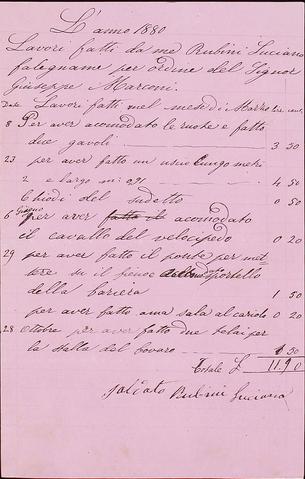 L'anno 1880
Lavori fatti da me Rubini Luciano
falegname per ordine del Signor
Giuseppe Marconi.
Date Lavori fatti nel mese di Marzo lire cent.
8 Per aver acomodato le ruote e fatto
due gavoli 3 50
23 per aver fatto un uscio lungo metri
2 e largo m: 0,91 4 50
Chiodi del sudetto 0 50
6 Giugno per aver fatto il acomodato
il cavallo del velocipedo 0 20
29 per aver fatto il ponte per met
tere su il fieno sportello
della bariera 1 50
per aver fatto una sala al cariolo 0 20
28 Ottobre per aver fatto due telai per
la stalla del bovaro 1 50
Totale £ 11.90
saldato Rubini Luciano